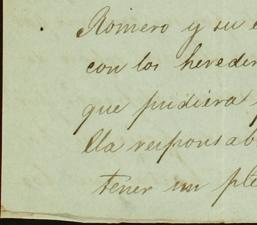 Romero y su e
con los heredir
que pudiera
lla responsab
tener un ple